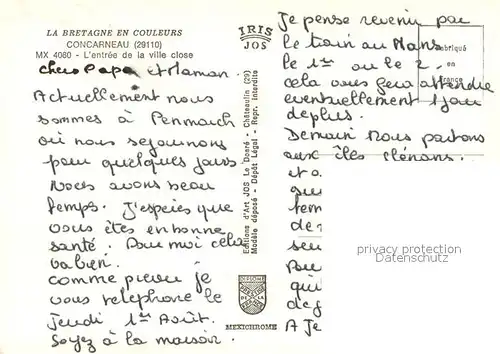 LA BRETAGNE EN COULEURS
CONCARNEAU (29110)
MX 4080 - L'entrée de la ville close
IRIS
JOS
chers Papa et Maman.
Actuellement nous
sommes à Penmarch
où nous séjournons
pour quelques jours
Nous avons beau
temps. J'espère que
vous êtes en bonne
santé. Pour moi cela
va bien.
comme prévu je
vous téléphone le
Jeudi 1er Août.
Soyez à la maison.
Editions d'Art JOS Le Doaré - Châteaulin (29)
Modèle déposé - Dépôt Légal - Repr. interdite
MEXICHROME
Je pense revenir par
le train au Mans
le 1er ou le 2.
cela vous fera attendre
éventuellement 1 jour
de plus.
Demain Nous partons
aux îles Glénans.
Fabriqué
en
France
et
de
A Je
privacy protection
Datenschutz